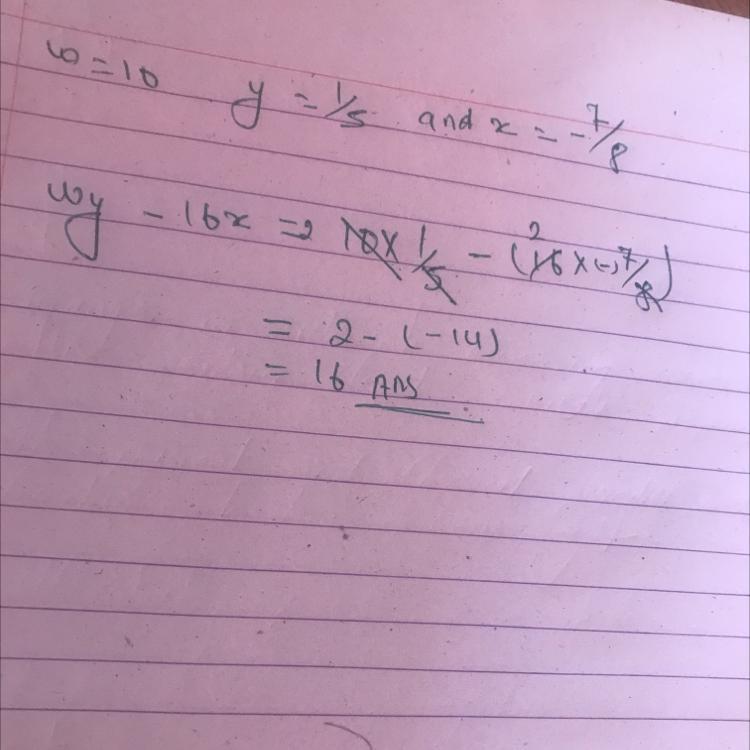 w = 10 y = 1/5 and x = -7/8
wy - 16x = 2 10 x 1/5 - (16 x (-) 7/8)
= 2 - (-14)
= 16 Ans